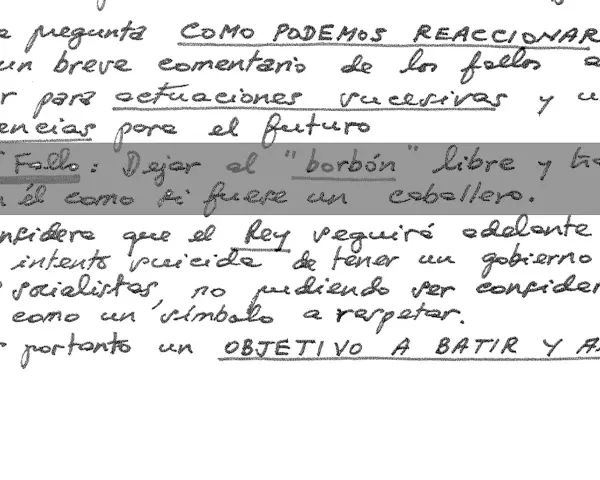 pregunta COMO PODEMOS REACCIONAR
un breve comentario de los fallos
para actuaciones sucesivas y
encias para el futuro
Fallo: Dejar al "borbón" libre y
él como si fuese un caballero.
nsidera que el Rey seguirá adelante
intento suicida de tener un gobierno
socialistas, no pudiendo ser consider
como un símbolo a respetar.
portanto un OBJETIVO A BATIR Y